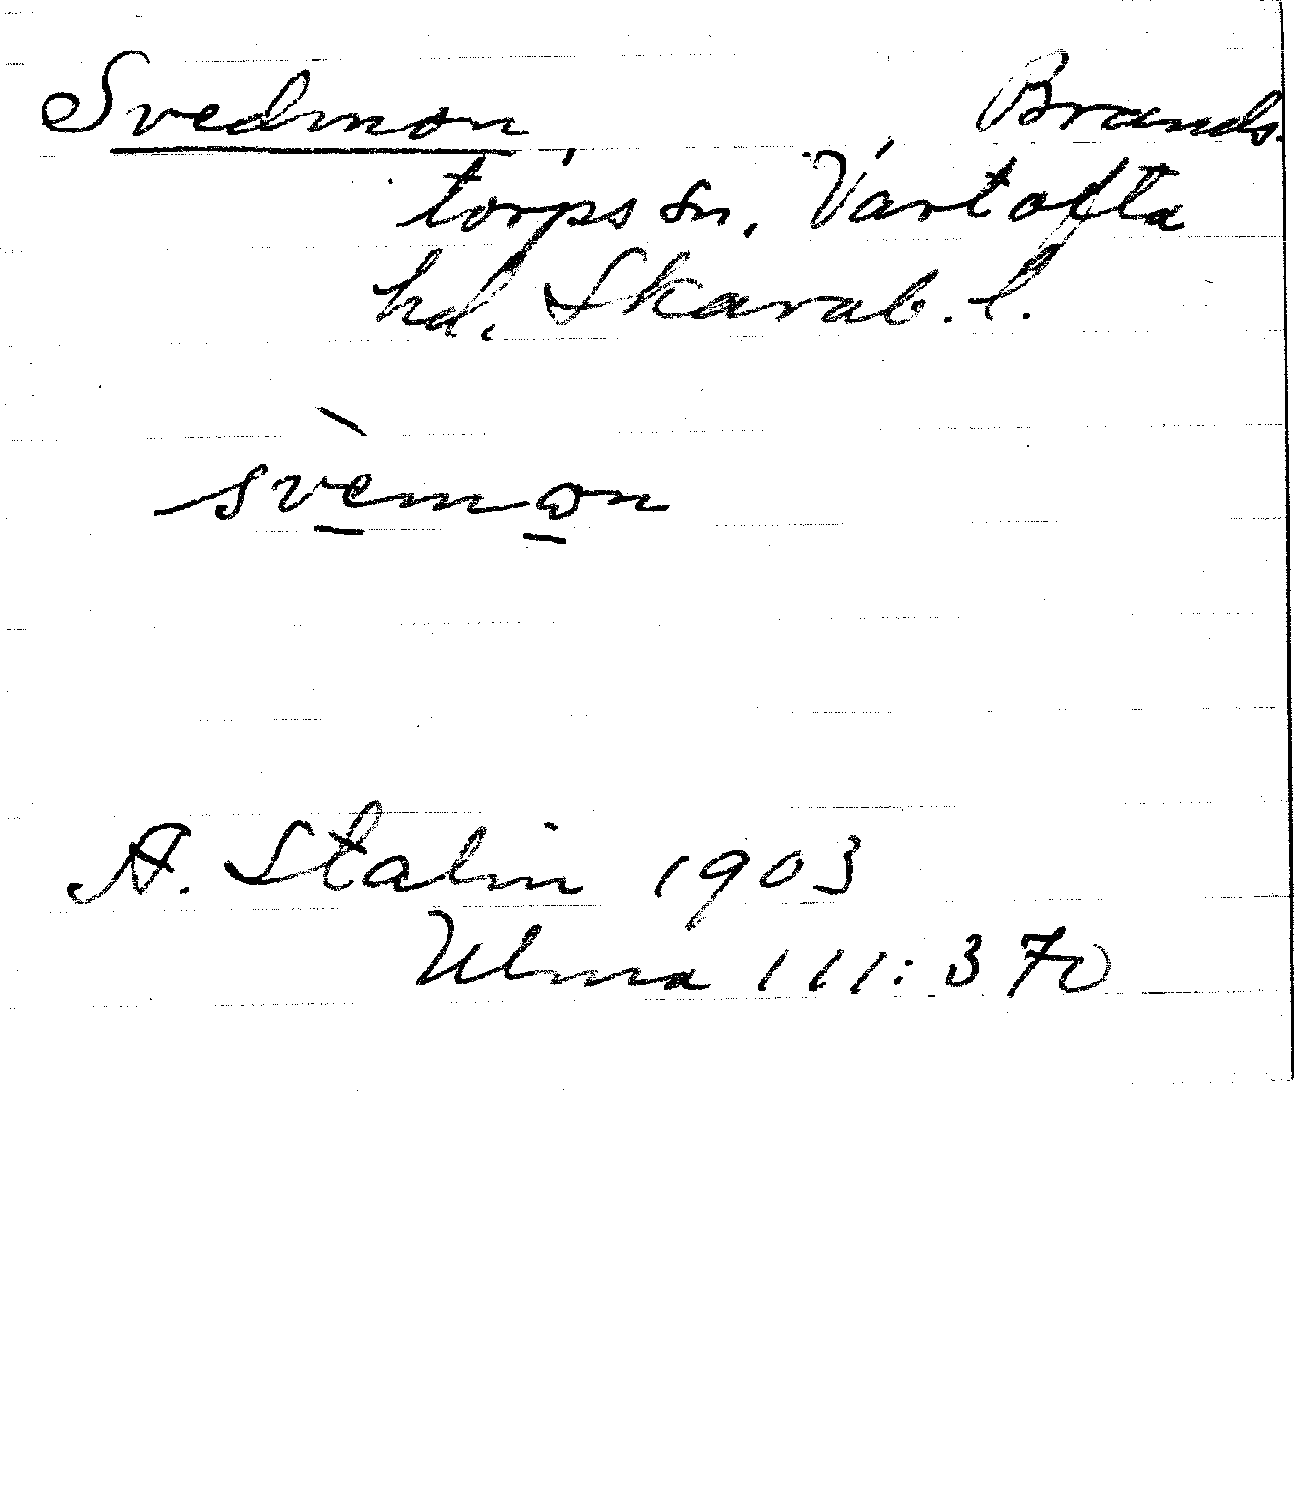 Svedmon, Brands-
torps sn, Vartofta
hd, Skarab. l.
svèmon
A. Stalin 1903
Ulma 111:370